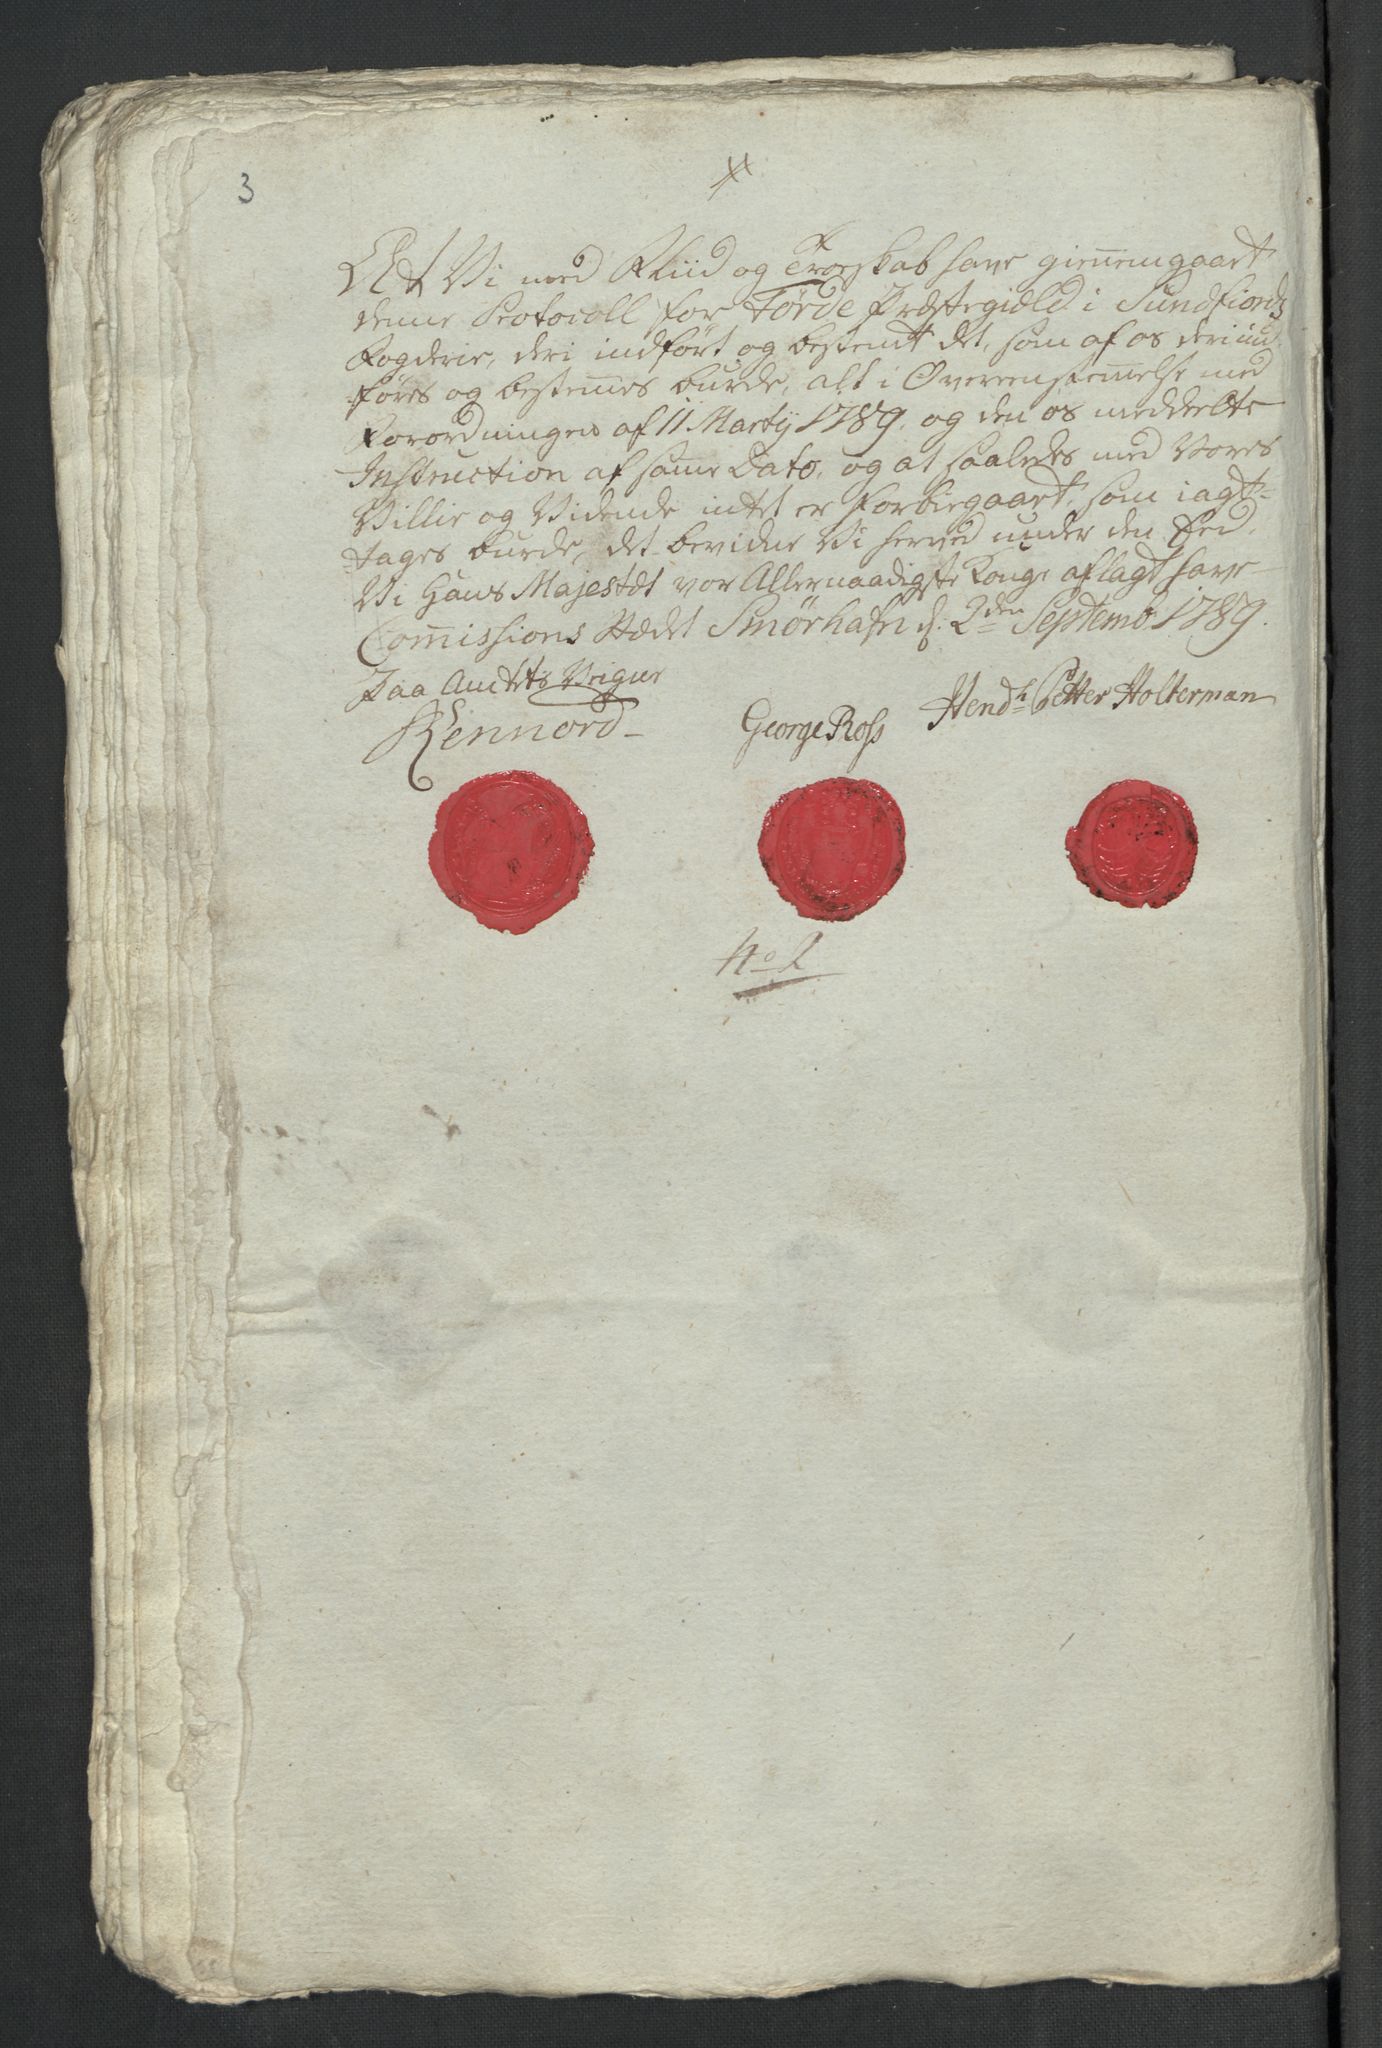 3
At Vi med Fliid og Troeskab have giennemgaaet
denne Protocoll for Førde Præstegield i Sundfiords
Fogderie, deri indført og bestemt det, som af os deri ind-
føres og bestemes burde, alt i Overeenstemelse med
Forordningen af 11 Martij 1789. og den os meddeelte
Instruction af same Dato, og at saaledes med Vores
Villie og Vidende intet er forbiegaaet, som iagt-
tages burde, det bevidne Vi herved under den Eed,
Vi Hans Majestæt vor Allernaadigste Konge aflagt have
Comissions Stædet Smørhafn d. 2den Septemb 1789.
Paa Amtets Veigne
Kennord
George Ross
Hendh Petter Holterman
No 2